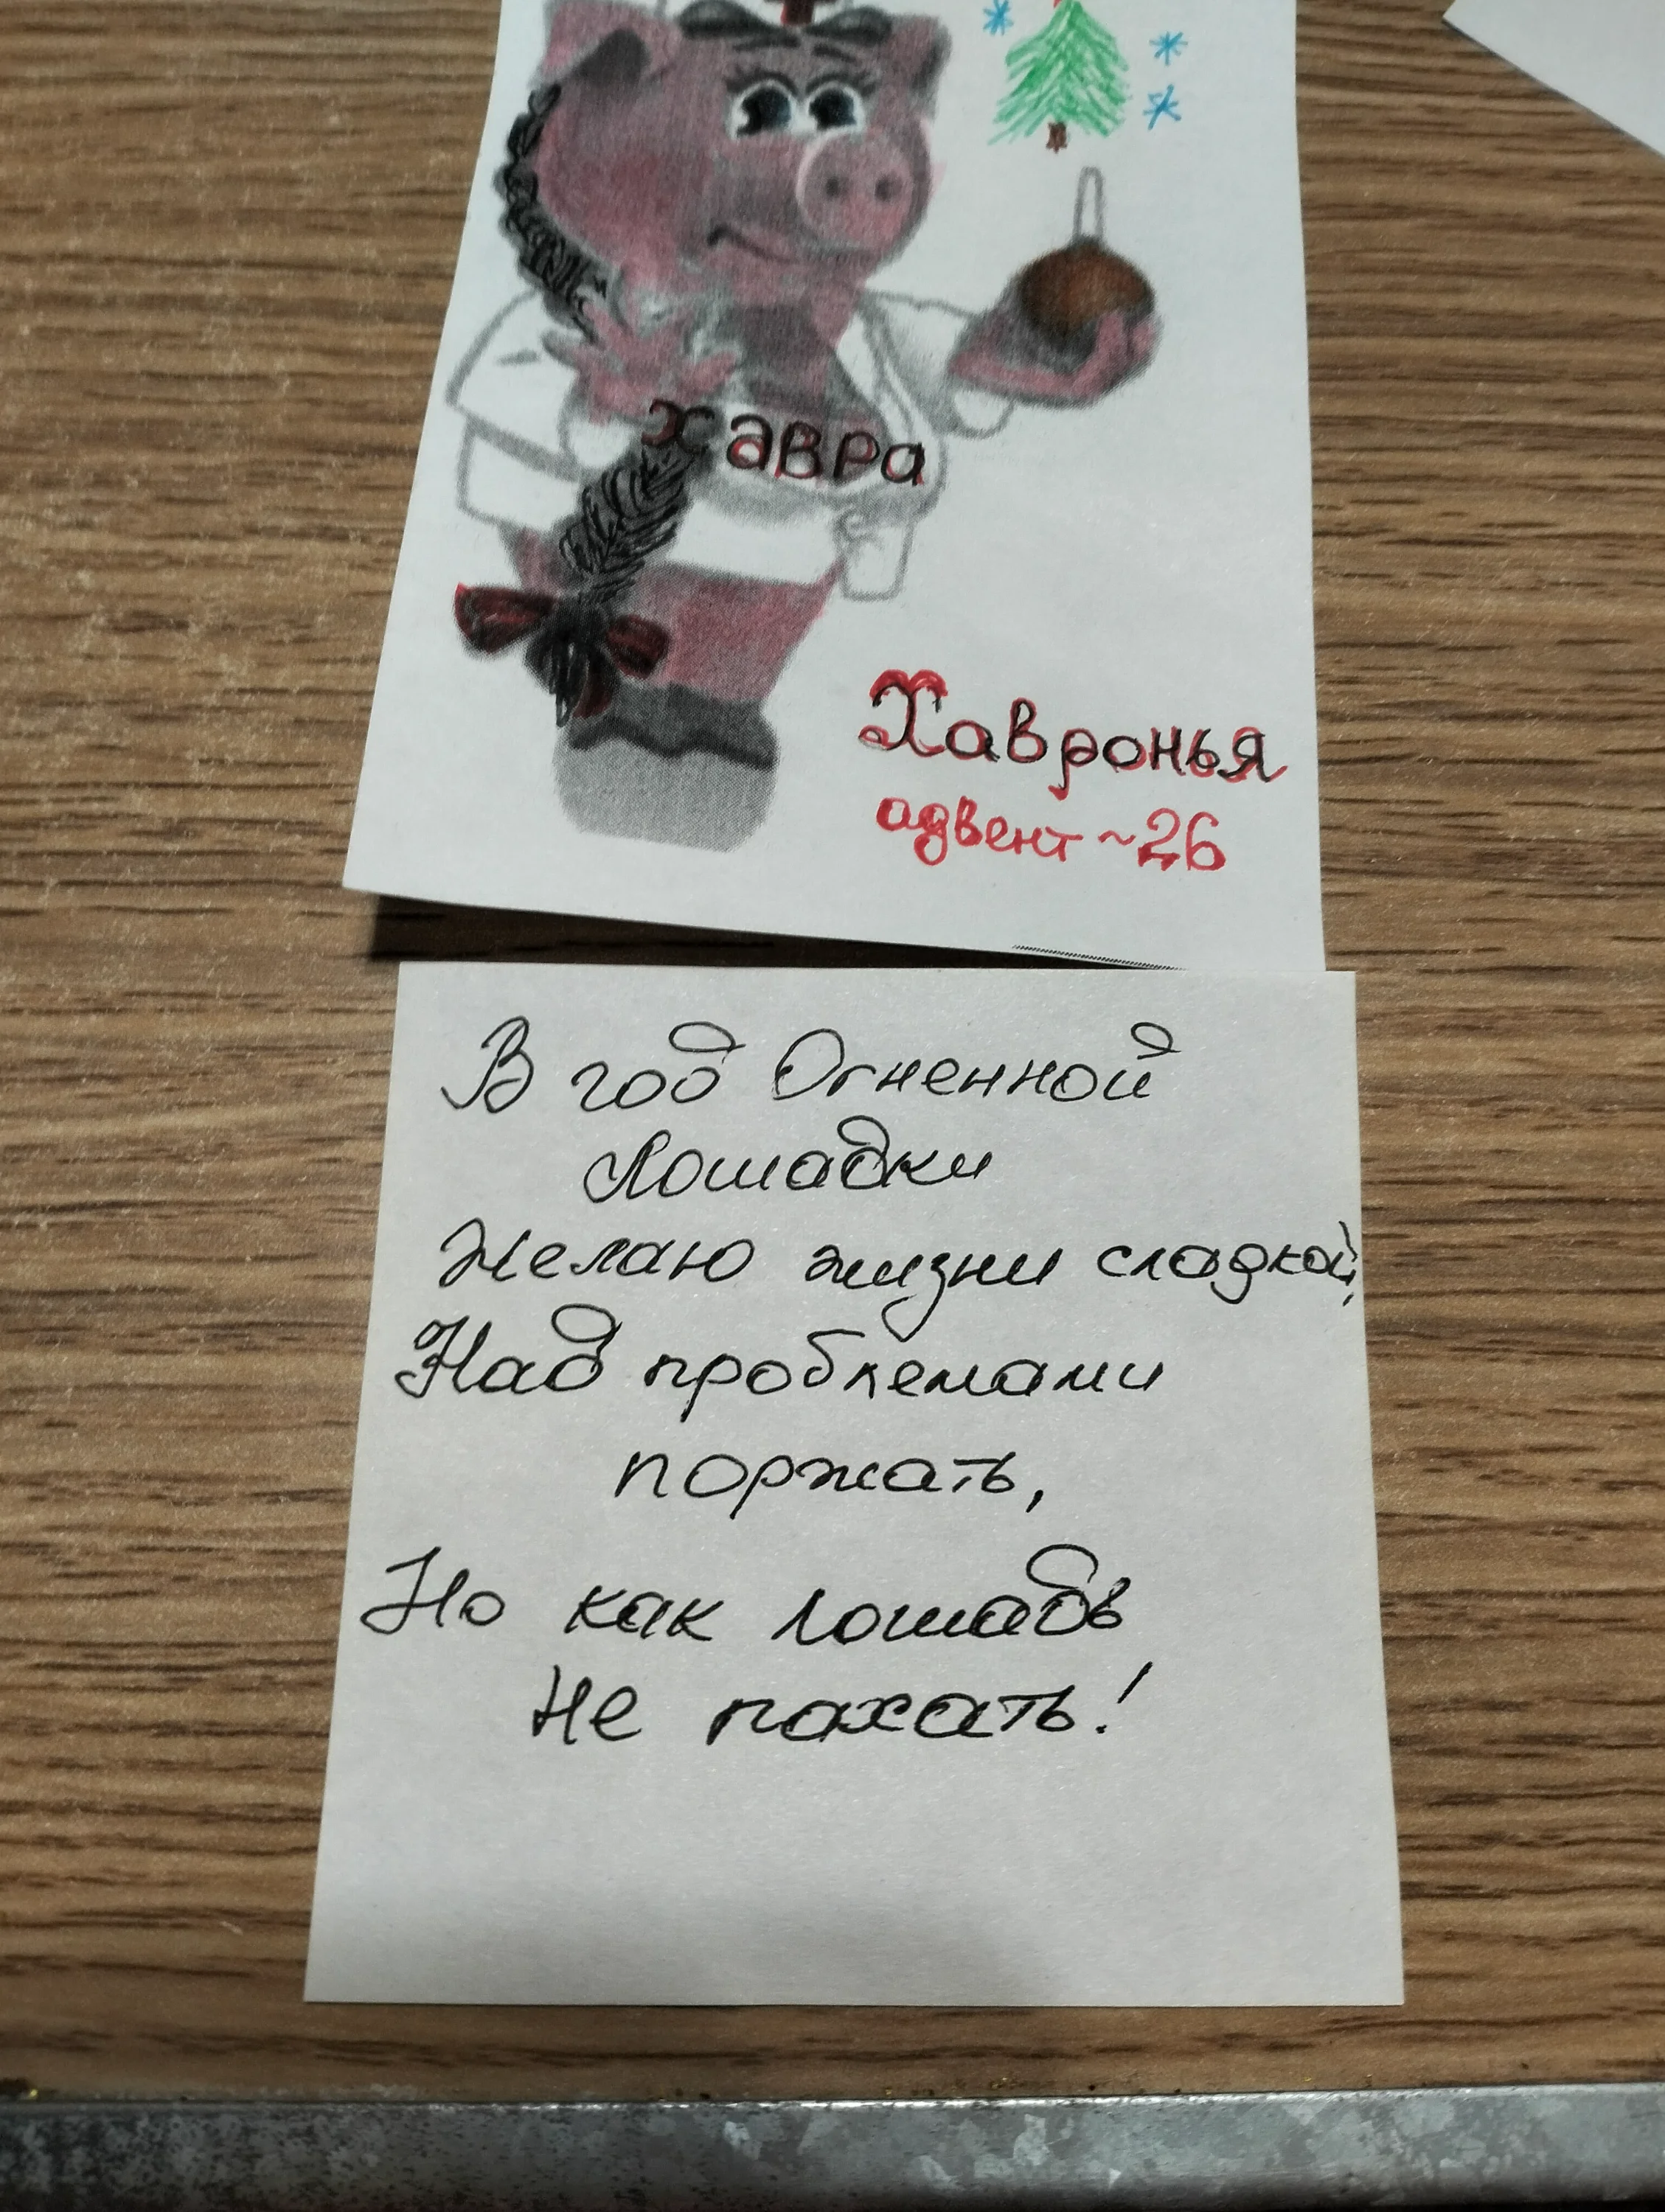 хавра
Хавронья
адвент ~26
В год Огненной
Лошадки
Желаю жизни сладкой,
Над проблемами
поржать,
Но как лошадь
не пахать!